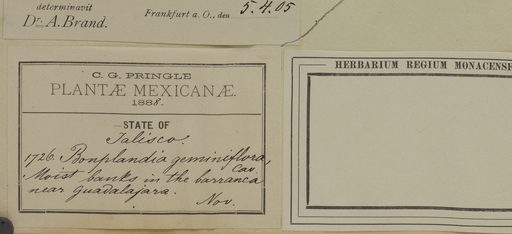 determinavit
Dr. A. Brand. Frankfurt a. O., den 5.4.05
C. G. PRINGLE
PLANTÆ MEXICANÆ.
1888.
STATE OF
Jalisco.
1726. Bonplandia geminiflora,
Cav.
Moist banks in the barranca
near Guadalajara.
Nov.
HERBARIUM REGIUM MONACENSE